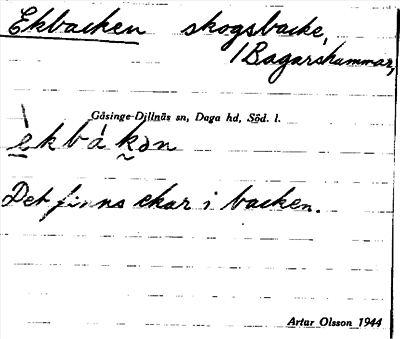 Ekbacken skogsbacke,
/Bagarshammar,
Gåsinge-Djllnäs sn, Daga hd, Söd. l.
è̱kbák̬ən
Det finns ekar i backen.
Artur Olsson 1944